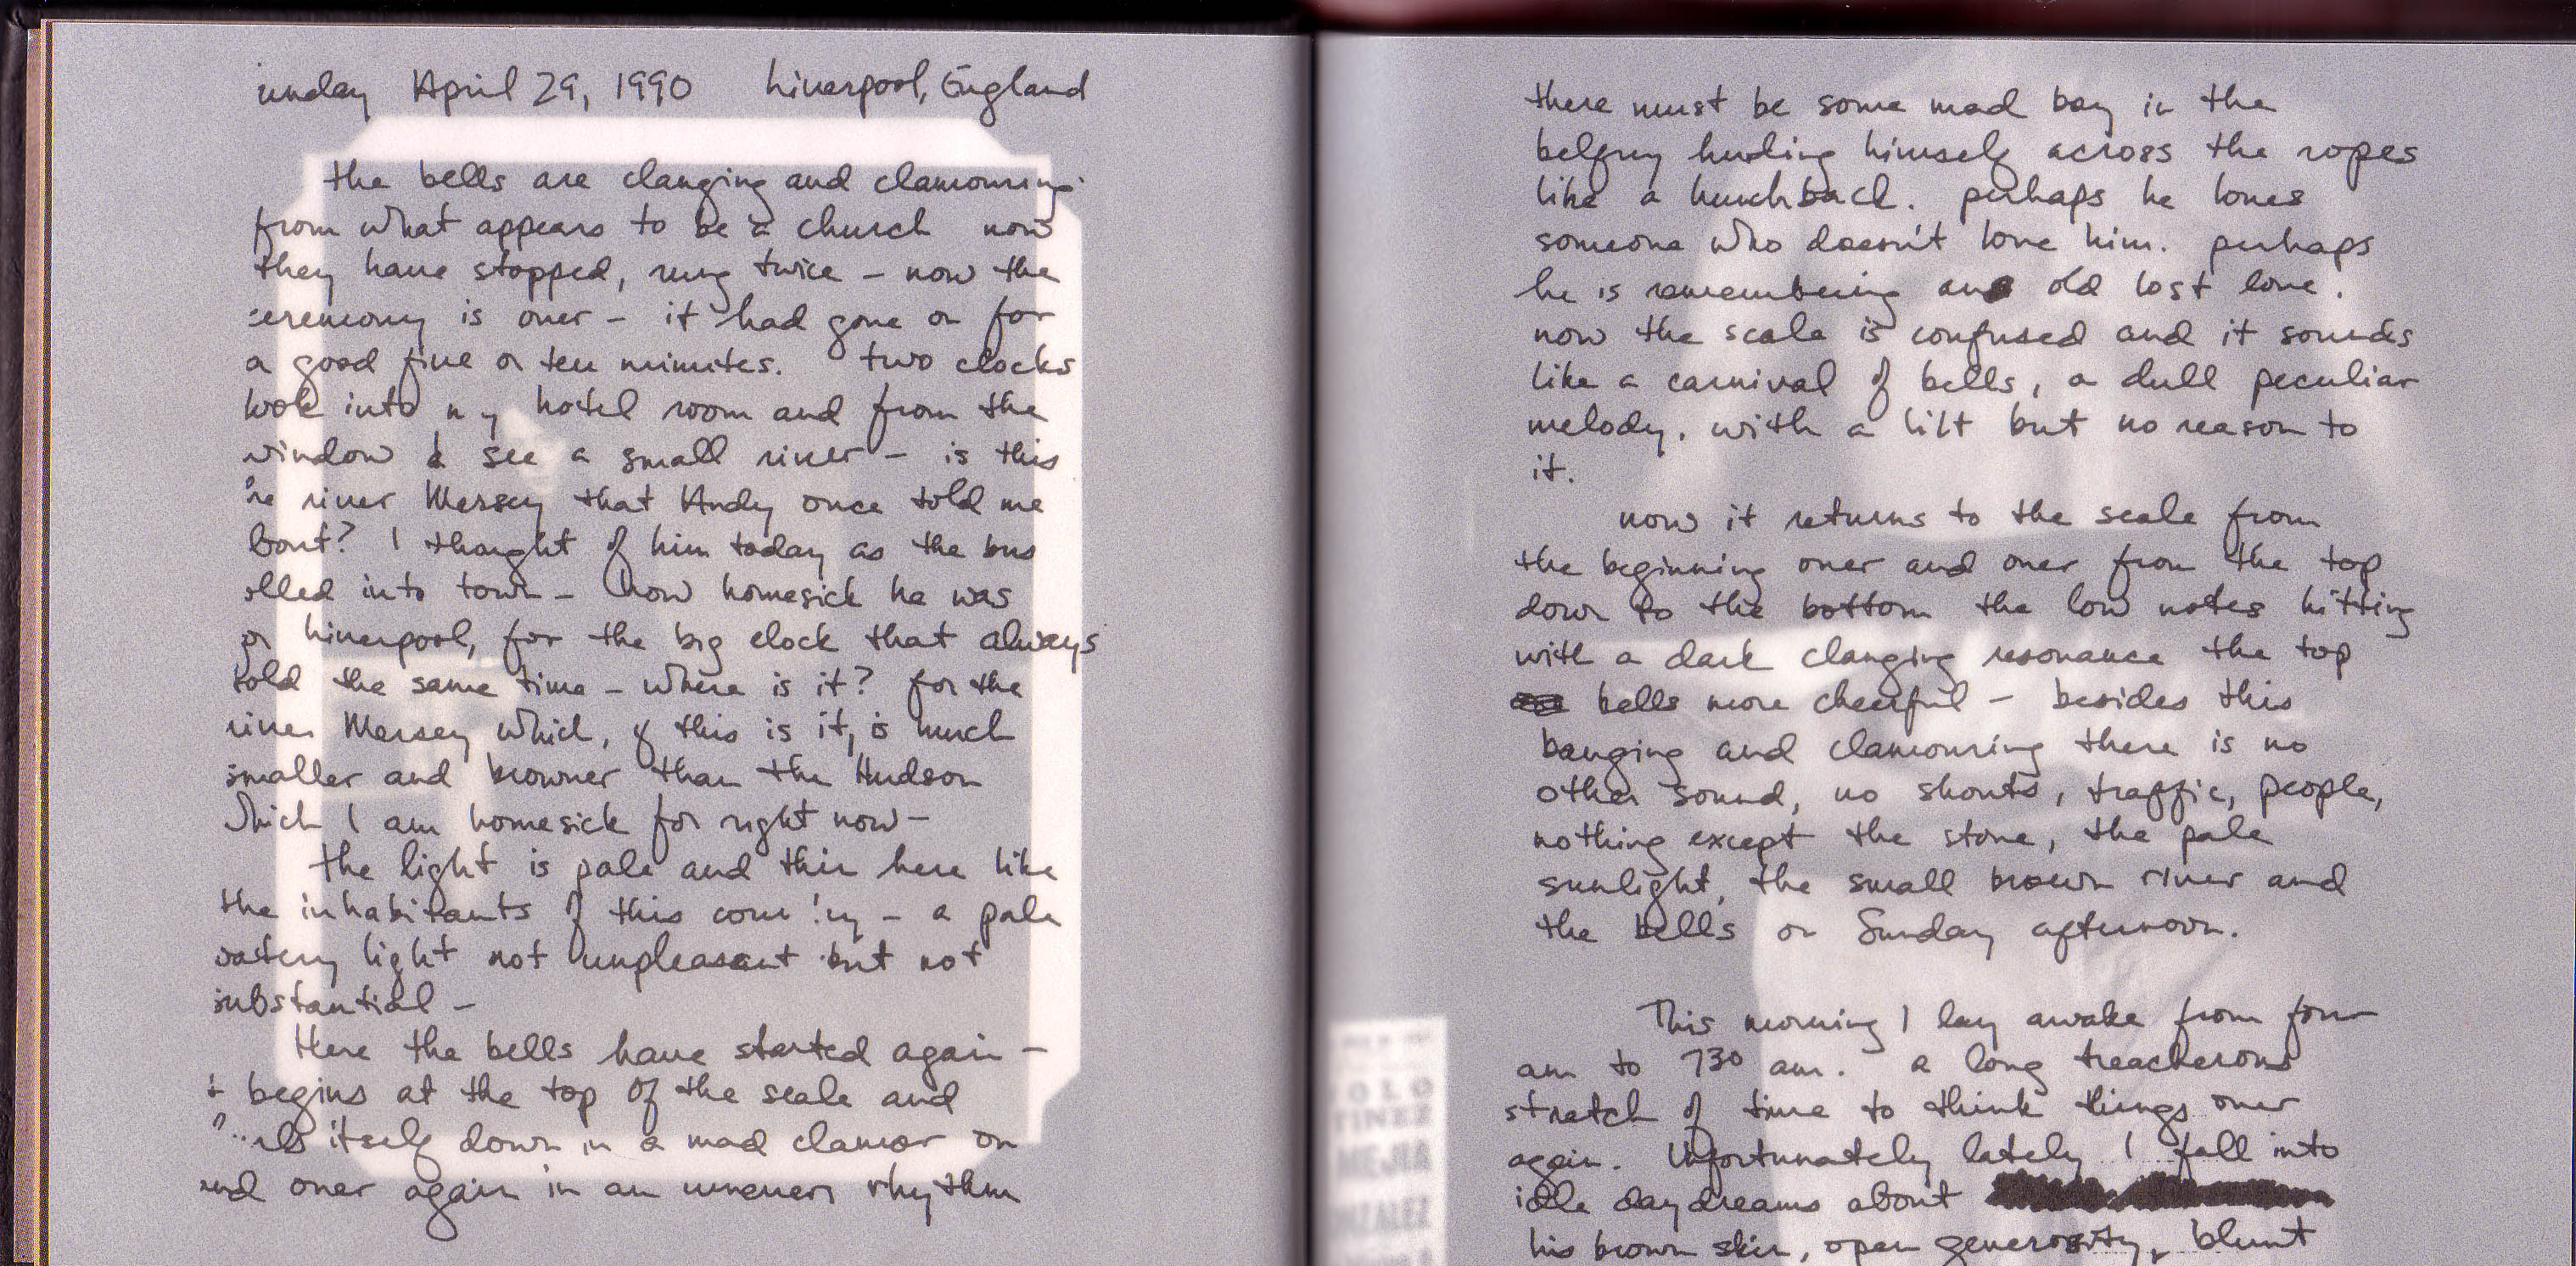 unday April 29, 1990 Liverpool, England
the bells are clanging and clamouring
from what appears to be a church now
they have stopped, rung twice – now the
ceremony is over – it had gone on for
a good five or ten minutes. two clocks
look into my hotel room and from the
window I see a small river – is this
he river Mersey that Andy once told me
bout? I thought of him today as the bus
olled into town – how homesick he was
or Liverpool, for the big clock that always
told the same time – where is it? for the
river Mersey which, if this is it, is much
smaller and browner than the Hudson
which I am homesick for right now –
the light is pale and thin here like
the inhabitants of this country – a pale
watery light not unpleasant but not
substantial –
there the bells have started again –
it begins at the top of the scale and
itself down in a mad clamor on
and over again in an uneven rhythm
there must be some mad boy in the
belfry hurling himself across the ropes
like a hunchback. perhaps he loves
someone who doesn't love him. perhaps
he is remembering an old lost love.
now the scale is confused and it sounds
like a carnival of bells, a dull peculiar
melody. with a lilt but no reason to
it.
now it returns to the scale from
the beginning over and over from the top
down to the bottom the low notes hitting
with a dark clanging resonance the top
bells more cheerful – besides this
banging and clamouring there is no
other sound, no shouts, traffic, people,
nothing except the stone, the pale
sunlight, the small brown river and
the bells on Sunday afternoon.
This morning I lay awake from four
am to 730 am. a long treacherous
stretch of time to think things over
again. Unfortunately lately I fall into
idle daydreams about
his brown skin, open generosity, blunt
MEJIA